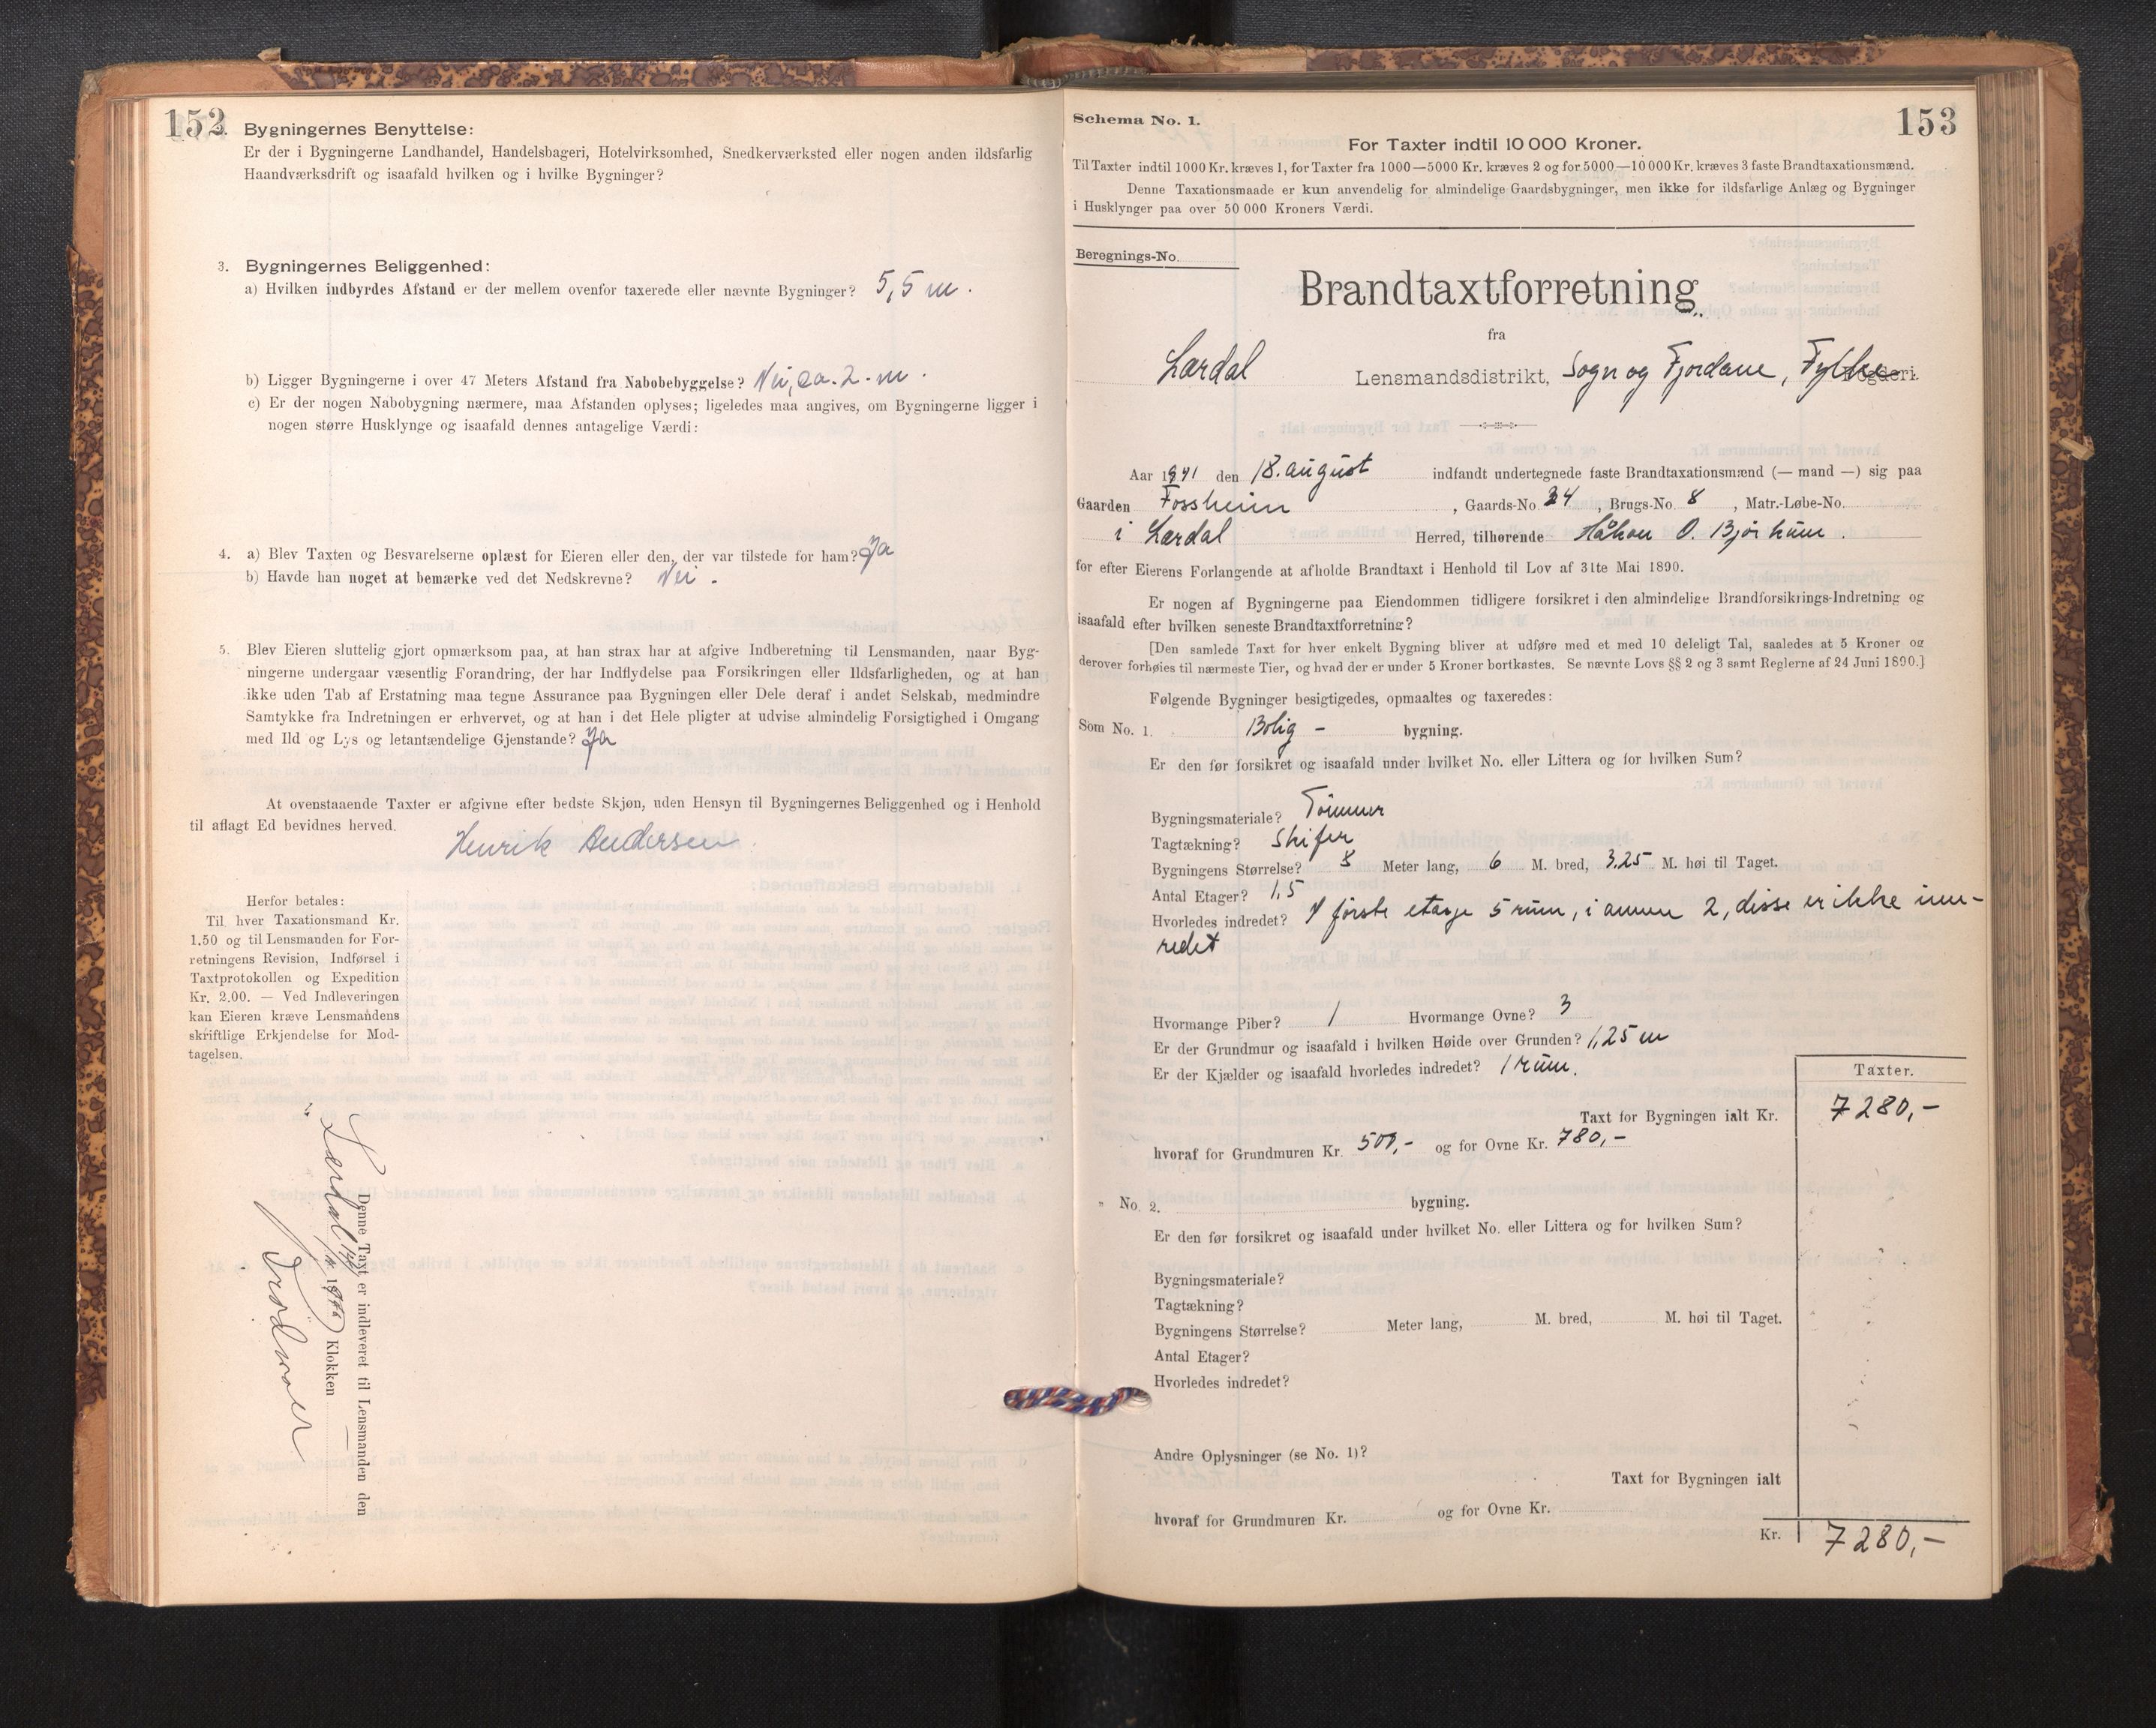 152
2. Bygningernes Benyttelse:
Er der i Bygningerne Landhandel, Handelsbageri, Hotelvirksomhed, Snedkerværksted eller nogen anden ildsfarlig
Haandværksdrift og isaafald hvilken og i hvilke Bygninger?
3. Bygningernes Beliggenhed:
a) Hvilken indbyrdes Afstand er der mellem ovenfor taxerede eller nævnte Bygninger? 5,5 m.
b) Ligger Bygningerne i over 47 Meters Afstand fra Nabobebyggelse? Nei, ca. 2. m.
c) Er der nogen Nabobygning nærmere, maa Afstanden oplyses; ligeledes maa angives, om Bygningerne ligger i
nogen større Husklynge og isaafald dennes antagelige Værdi:
4. a) Blev Taxten og Besvarelserne oplæst for Eieren eller den, der var tilstede for ham? Ja
b) Havde han noget at bemærke ved det Nedskrevne? Nei.
5. Blev Eieren sluttelig gjort opmærksom paa, at han strax har at afgive Indberetning til Lensmanden, naar Byg-
ningerne undergaar væsentlig Forandring, der har Indflydelse paa Forsikringen eller Ildsfarligheden, og at han
ikke uden Tab af Erstatning maa tegne Assurance paa Bygningen eller Dele deraf i andet Selskab, medmindre
Samtykke fra Indretningen er erhvervet, og at han i det Hele pligter at udvise almindelig Forsigtighed i Omgang
med Ild og Lys og letantændelige Gjenstande? Ja
At ovenstaaende Taxter er afgivne efter bedste Skjøn, uden Hensyn til Bygningernes Beliggenhed og i Henhold
til aflagt Ed bevidnes herved.
Henrik Andersen
Herfor betales:
Til hver Taxationsmand Kr.
1.50 og til Lensmanden for For-
retningens Revision, Indførsel i
Taxtprotokollen og Expedition
Kr. 2.00. — Ved Indleveringen
kan Eieren kræve Lensmandens
skriftlige Erkjendelse for Mod-
tagelsen.
Denne Taxt er indleveret til Lensmanden den
Lærdal Klokken
153
Schema No. 1.
For Taxter indtil 10 000 Kroner.
Til Taxter indtil 1000 Kr. kræves 1, for Taxter fra 1000—5000 Kr. kræves 2 og for 5000—10 000 Kr. kræves 3 faste Brandtaxationsmænd.
Denne Taxationsmaade er kun anvendelig for almindelige Gaardsbygninger, men ikke for ildsfarlige Anlæg og Bygninger
i Husklynger paa over 50 000 Kroners Værdi.
Beregnings-No.
Brandtaxtforretning
fra
Lærdal Lensmandsdistrikt, Sogn og Fjordane, Fylke Fogderi.
Aar 1941 den 18. august indfandt undertegnede faste Brandtaxationsmænd (— mand —) sig paa
Gaarden Fossheim, Gaards-No. 34, Brugs-No. 8, Matr.-Løbe-No.
i Lærdal Herred, tilhørende Håkon O. Bjørkum.
for efter Eierens Forlangende at afholde Brandtaxt i Henhold til Lov af 31te Mai 1890.
Er nogen af Bygningerne paa Eiendommen tidligere forsikret i den almindelige Brandforsikrings-Indretning og
isaafald efter hvilken seneste Brandtaxtforretning?
[Den samlede Taxt for hver enkelt Bygning bliver at udføre med et med 10 deleligt Tal, saaledes at 5 Kroner og
derover forhøies til nærmeste Tier, og hvad der er under 5 Kroner bortkastes. Se nævnte Lovs §§ 2 og 3 samt Reglerne af 24 Juni 1890.]
Følgende Bygninger besigtigedes, opmaaltes og taxeredes:
Som No. 1. Bolig - bygning.
Er den før forsikret og isaafald under hvilket No. eller Littera og for hvilken Sum?
Bygningsmateriale? Tömmer
Tagtækning? Skifer
Bygningens Størrelse? 8 Meter lang, 6 M. bred, 3,25 M. høi til Taget.
Antal Etager? 1,5
Hvorledes indredet? I første etasje 5 rum, i annen 2, disse er ikke inn-
redet
Hvormange Piber? 1 Hvormange Ovne? 3
Er der Grundmur og isaafald i hvilken Høide over Grunden? 1,25 m
Er der Kjælder og isaafald hvorledes indredet? 1 rum.
Taxter.
Taxt for Bygningen ialt Kr. 7280,-
hvoraf for Grundmuren Kr. 500,- og for Ovne Kr. 780,-
" No. 2. bygning.
Er den før forsikret og isaafald under hvilket No. eller Littera og for hvilken Sum?
Bygningsmateriale?
Tagtækning?
Bygningens Størrelse? Meter lang, M. bred, M. høi til Taget.
Antal Etager?
Hvorledes indredet?
Andre Oplysninger (se No. 1)?
Taxt for Bygningen ialt
hvoraf for Grundmuren Kr. og for Ovne Kr.
Kr. 7280,-